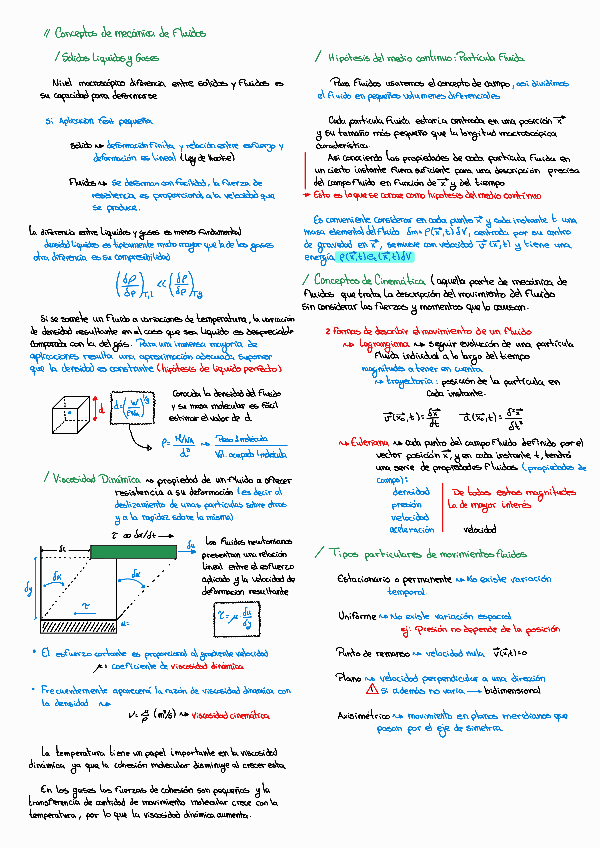 // Conceptos de mecánica de Fluidos
/ Sólidos Líquidos y Gases
Nivel macroscópico diferencia entre sólidos y Fluidos es
su capacidad para deformarse
Si Aplicación Fext pequeña
Sólido ↝ deformación Finita y relación entre esfuerzo y
deformación es lineal (Ley de Hooke)
Fluidos ↝ Se deforman con facilidad, la fuerza de
resistencia es proporcional a la velocidad que
se produce.
La diferencia entre Líquidos y gases es menos fundamental
densidad líquidos es típicamente mucho mayor que la de los gases
otra diferencia es su compresibilidad
(δρ/δp)T,l << (δρ/δp)T,g
Si se somete un Fluido a variaciones de temperatura, la variación
de densidad resultante en el caso que sea líquido es despreciable
comparada con la del gas. Para una inmensa mayoría de
aplicaciones resulta una aproximación adecuada suponer
que la densidad es constante (hipótesis de líquido perfecto)
d
d = (W/ρNA)^1/3
Conocida la densidad del fluido
y su masa molecular es fácil
estimar el valor de d.
ρ = M/NA / d³ ↝ Peso 1 molécula / Vol. ocupado 1 molécula
/ Viscosidad Dinámica ↝ propiedad de un fluido a ofrecer
resistencia a su deformación (es decir al
deslizamiento de unas partículas sobre otras
y a la rapidez sobre la misma)
τ ∝ δα/δt
δx
δu
δy
δα
δα
τ
Los Fluidos newtonianos
presentan una relación
lineal entre el esfuerzo
aplicado y la velocidad de
deformación resultante
τ = μ δu/δy
• El esfuerzo cortante es proporcional al gradiente velocidad
μ: coeficiente de viscosidad dinámica
• Frecuentemente aparecerá la razón de viscosidad dinámica con
la densidad ↝
ν = μ/ρ (m²/s) ↝ viscosidad cinemática
La temperatura tiene un papel importante en la viscosidad
dinámica ya que la cohesión molecular disminuye al crecer esta.
En los gases las fuerzas de cohesión son pequeñas y la
transferencia de cantidad de movimiento molecular crece con la
temperatura, por lo que la viscosidad dinámica aumenta.
/ Hipótesis del medio continuo: Partícula Fluida
Para Fluidos usaremos el concepto de campo, así dividimos
el fluido en pequeños volúmenes diferenciales
Cada partícula fluida estaría centrada en una posición x⃗
y su tamaño más pequeño que la longitud macroscópica
característica.
Así conociendo las propiedades de cada partícula Fluida en
un cierto instante fuera suficiente para una descripción precisa
del campo fluido en Función de x⃗ y del tiempo
* Esto es lo que se conoce como hipótesis del medio continuo
Es conveniente considerar en cada punto x⃗ y cada instante t una
masa elemental del Fluido δm=ρ(x⃗,t)δV, centrada por su centro
de gravedad en x⃗, se mueve con velocidad v⃗(x⃗,t) y tiene una
energía ρ(x⃗,t)e(x⃗,t)δV
/ Conceptos de Cinemática (aquella parte de mecánica de
Fluidos que trata la descripción del movimiento del fluido
sin considerar las fuerzas y momentos que lo causan.
2 formas de describir el movimiento de un fluido
↝ Lagrangiana ↝ seguir evolución de una partícula
fluida individual a lo largo del tiempo
magnitudes a tener en cuenta
↝ trayectoria: posición de la partícula en
cada instante.
v⃗(x⃗₀,t) = δx⃗/δt a⃗(x⃗₀,t) = δ²x⃗/δt²
↝ Euleriana ↝ cada punto del campo Fluido definido por el
vector posición x⃗ y en cada instante t, tendrá
una serie de propiedades fluidas (propiedades de
campo):
densidad
presión
velocidad
aceleración
De todas estas magnitudes
la de mayor interés
velocidad
/ Tipos particulares de movimientos fluidos
Estacionario o permanente ↝ No existe variación
temporal
Uniforme ↝ No existe variación espacial
ej: Presión no depende de la posición
Punto de remanso ↝ velocidad nula v⃗(x⃗,t)=0
Plano ↝ velocidad perpendicular a una dirección
⚠ si además no varía → bidimensional
Axisimétrico ↝ movimiento en planos meridianos que
pasan por el eje de simetría